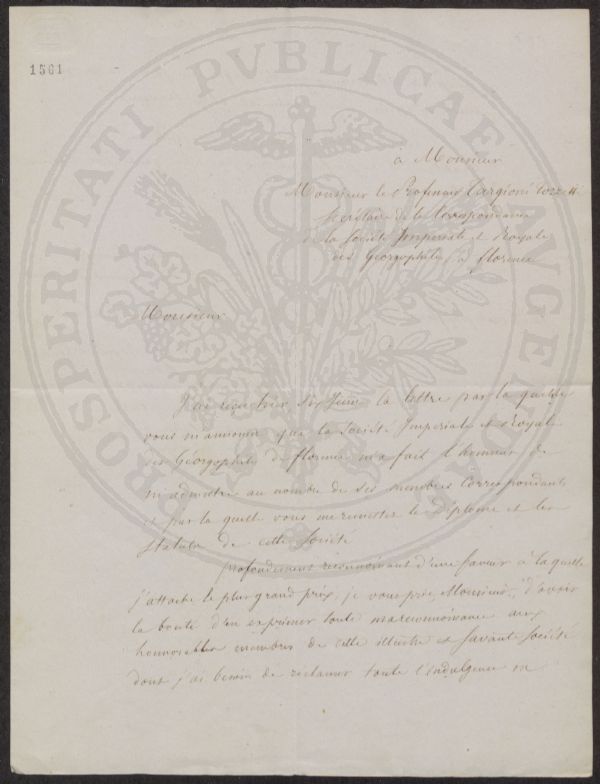 1561
PROSPERITATI PVBLICAE AVGENDAE
à Monsieur
Monsieur le Professeur Targioni Tozzetti
Secrétaire de la Correspondance
de la Société Impériale et Royale
des Géorgophiles à florence
Monsieur
J'ai reçu hier six Juin la lettre par la quelle
vous m'annoncer que la Société Impériale et Royale
des Géorgophiles de florence m'a fait l'honneur de
m'admettre au nombre de ses membres Correspondants
et par la quelle vous me remettes le diplome et les
statuts de cette Société
profondement reconnoissant d'une faveur à la quelle
j'attache le plus grand prix, je vous prie, Monsieur, d'avoir
la bonté d'en exprimer toute ma reconnoissance aux
honorables membres de cette illustre et savante société
dont j'ai besoin de réclamer toute l'indulgence